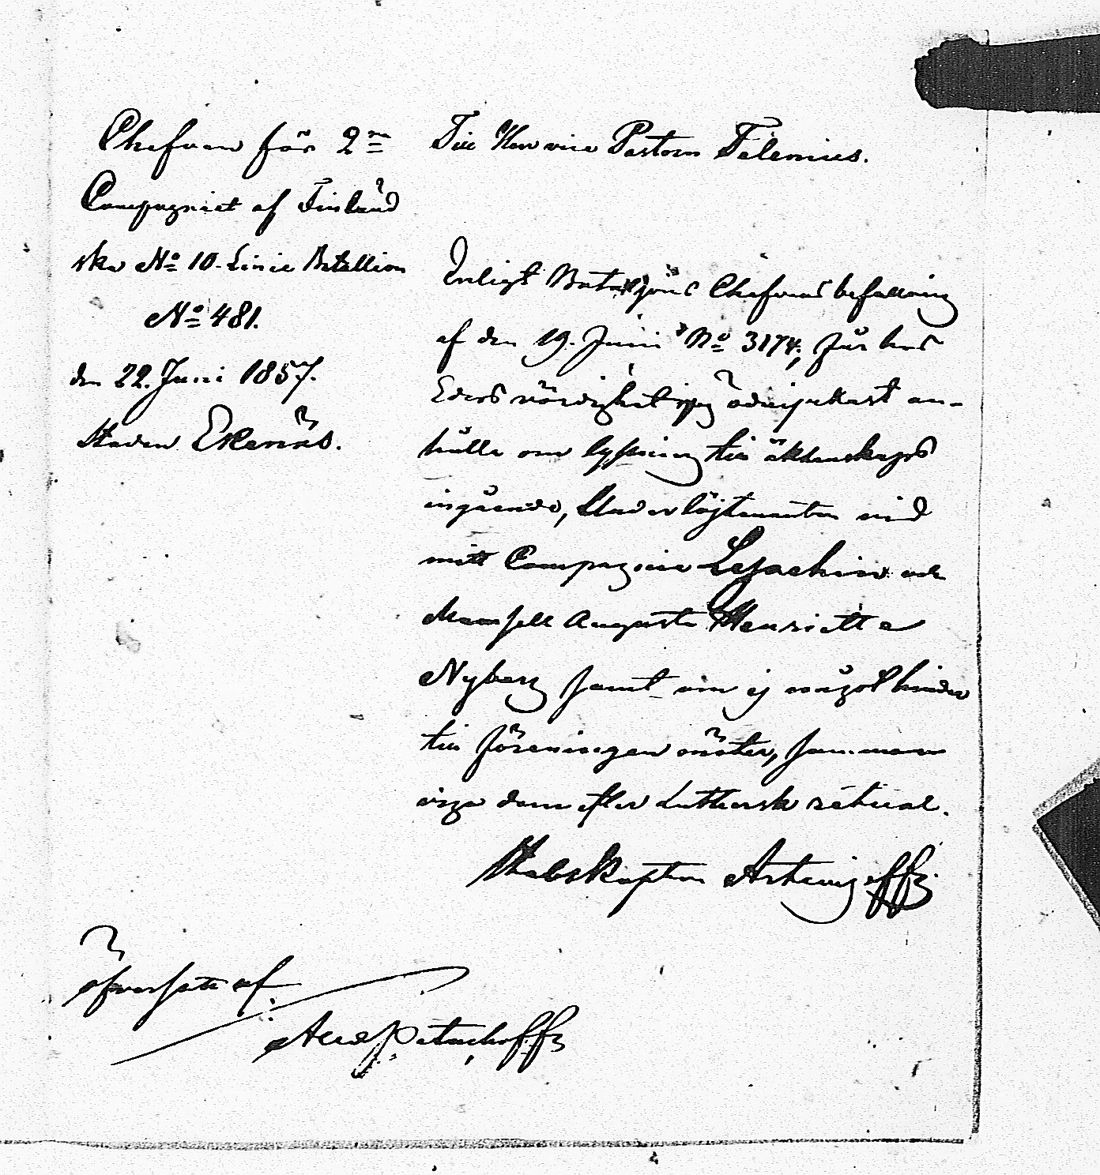 Chefven för 2ra
Compagniet af Finländ
ska No 10 Linie Batallion
No 481.
den 22. Juni 1857.
Staden Ekenäs.
Till Herr vice Pastorn Felenius.
Enligt Bataljons Chefvens befallning
af den 19. Juni No 3174, får hos
Eders värdighet jag ödmjukast an-
hålla om lysning till äktenskaps
ingående, Underlöjtnanten vid
mitt Compagnie Lesjachin och
Mamsell Augusta Henrietta
Nyberg samt om ej något hinder
till föreningen möter, samman
viga dem efter Luthersk ritual.
Stabskapten
Öfversatt af